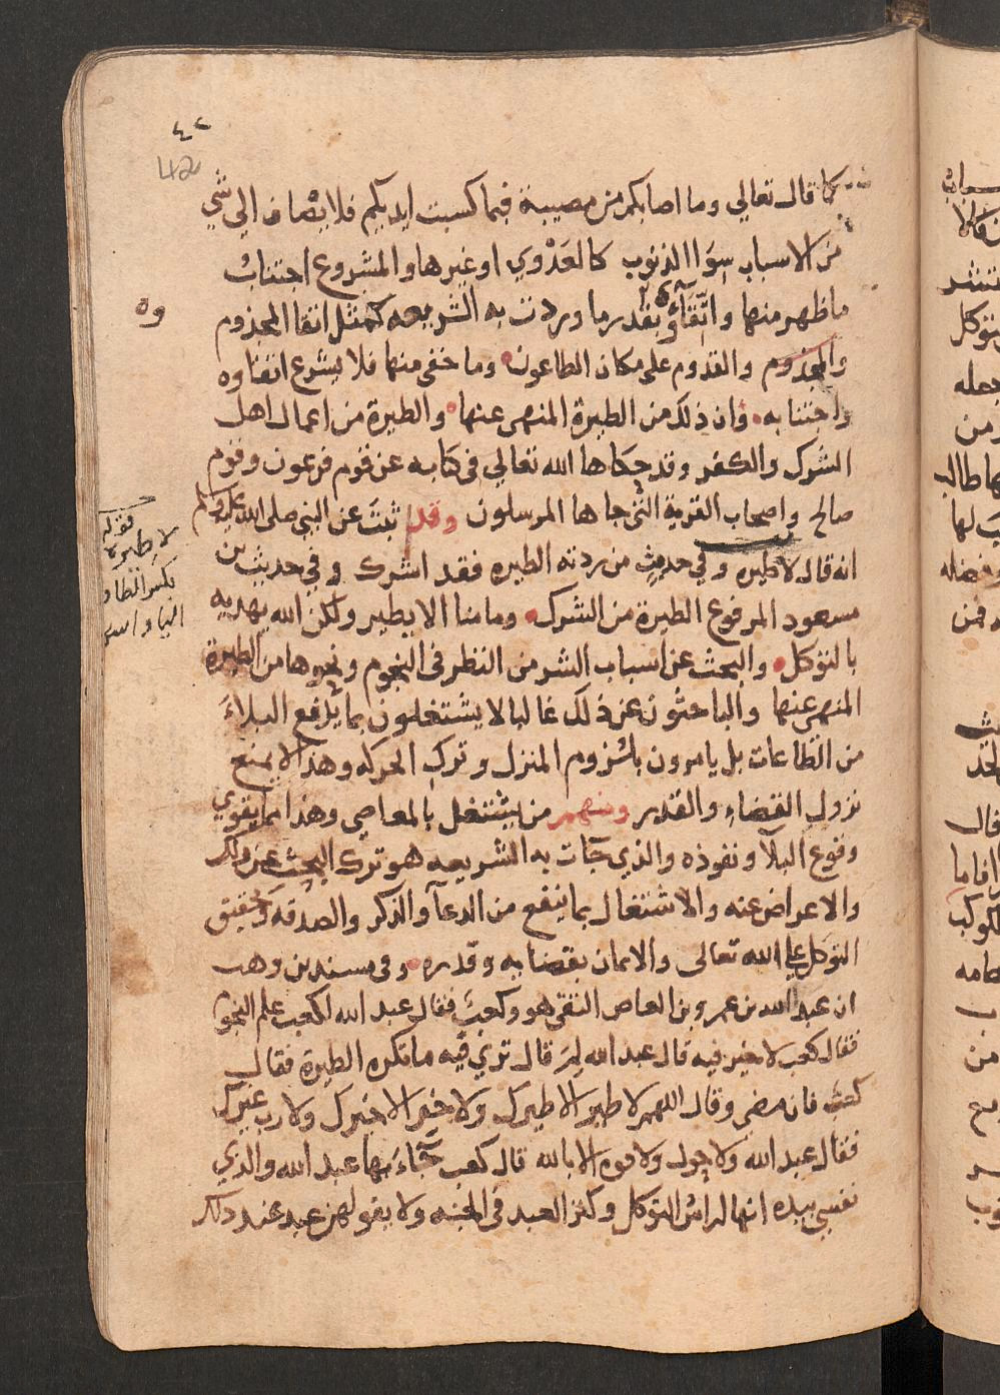 ٤٢
42
كما قال تعالي وما اصابكم من مصيبة فبما كسبت ايديكم فلا يضاف الي شي
من الاسباب سوا الذنوب كالعدوي او غيرها والمشروع اجتناب
ما ظهر منها واتقاؤه بقدر ما وردت به الشريعه كمثل اتقا المجذوم
والمجذوم والقدوم على مكان الطاعون وما خفى منها فلا يشرع اتقاوه
واجتنابه وان ذلك من الطيرة المنهى عنها والطيرة من اعمال اهل
الشرك والكفر وقد حكاها الله تعالي فى كتابه عن قوم فرعون وقوم
صالح واصحاب القرية التى جاها المرسلون وقد ثبت عن النبى صلى الله عليه وسلم
انه قال لا طيره وفي حديث من ردته الطيره فقد اشرك وفي حديث بن
مسعود المرفوع الطيرة من الشرك وما منا الا يطير ولكن الله يهديه
بالتوكل والبحث عن اسباب الشر من النظر فى النجوم ونحوها من الطيرة
المنهى عنها والباحثون عن ذلك غالبا لا يشتغلون بما يدفع البلاء
من الطاعات بل يامرون بلزوم المنزل وترك الحركه وهذا لا يمنع
نزول القضاء والقدر ومنهم من يشتغل بالمعاصي وهذا مما يقوي
وقوع البلآ ونفوذه والذي جآت به الشريعه هو ترك البحث عن ذلك
والاعراض عنه والاشتغال بما ينفع من الدعآ والذكر والصدقه وتحقيق
التوكل علي الله تعالى والايمان بقضايه وقدره وفى مسند بن وهب
ان عبد الله بن عمرو بن العاص التقى هو وكعب فقال عبد الله لكعب علم النجوم
فقال كعب لا خير فيه قال عبد الله لم قال تري فيه ما تكره الطيرة فقال
كعب فان مضي وقال اللهم لا طير الا طيرك ولا خير الا خيرك ولا رب غيرك
فقال عبد الله ولا حول ولا قوه الا بالله قال كعب جآء بها عبد الله والذي
نفسي بيده انها لراس التوكل وكنز العبد فى الجنه ولا يقولهن عبد عند ذلك
وه
قوله
لا طيرة
بكسر الطا و